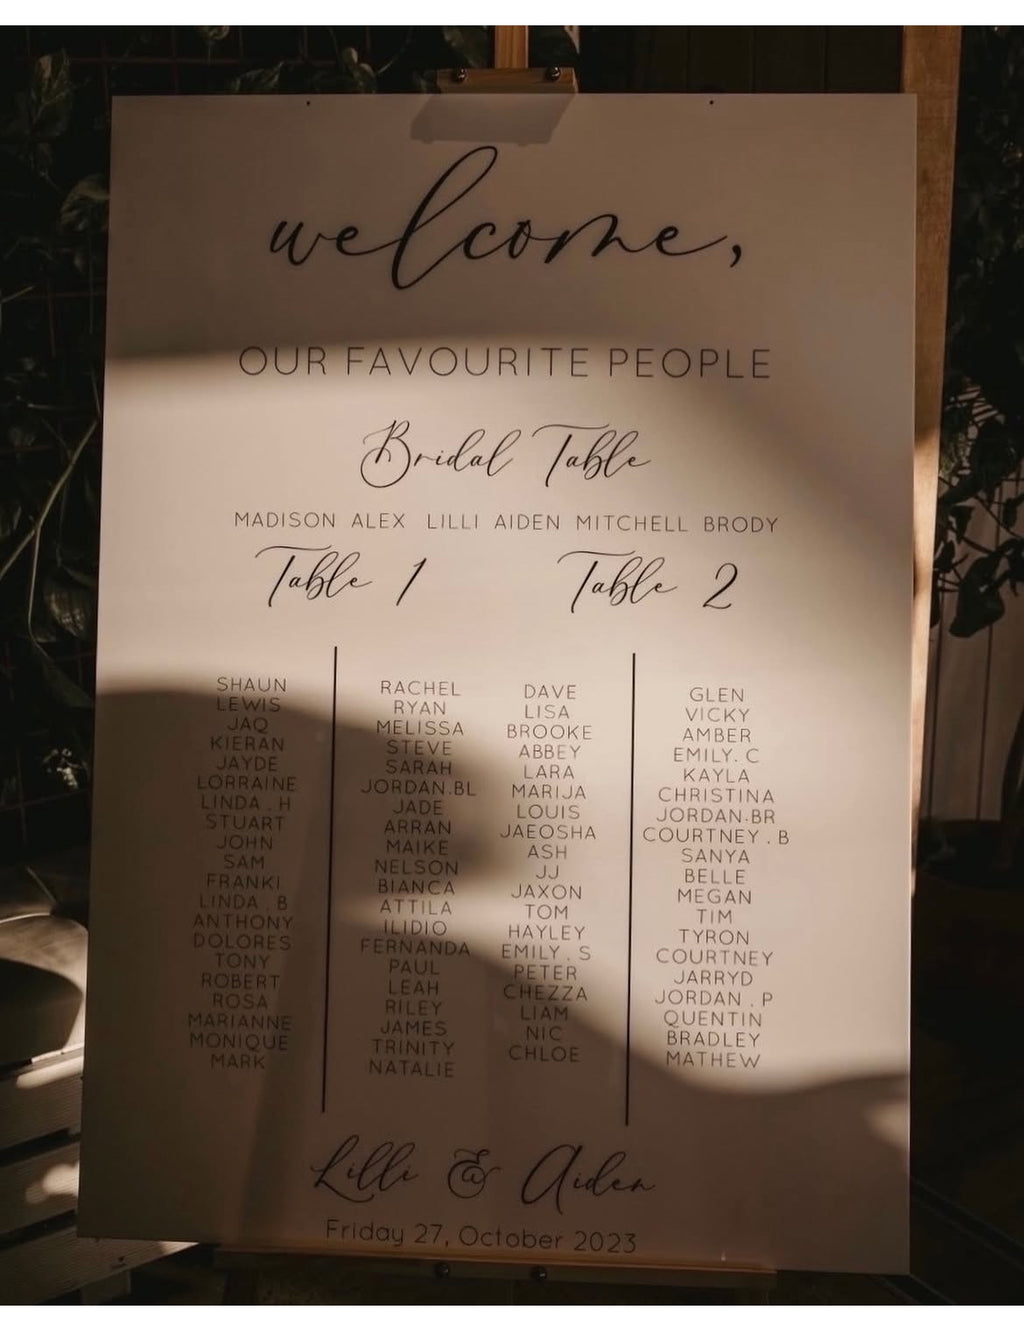 welcome,
OUR FAVOURITE PEOPLE
Bridal Table
MADISON ALEX LILLI AIDEN MITCHELL BRODY
Table 1
SHAUN
LEWIS
JAQ
KIERAN
JAYDE
LORRAINE
LINDA . H
STUART
JOHN
SAM
FRANKI
LINDA . B
ANTHONY
DOLORES
TONY
ROBERT
ROSA
MARIANNE
MONIQUE
MARK
RACHEL
RYAN
MELISSA
STEVE
SARAH
JORDAN.BL
JADE
ARRAN
MAIKE
NELSON
BIANCA
ATTILA
ILIDIO
FERNANDA
PAUL
LEAH
RILEY
JAMES
TRINITY
NATALIE
Table 2
DAVE
LISA
BROOKE
ABBEY
LARA
MARIJA
LOUIS
JAEOSHA
ASH
JJ
JAXON
TOM
HAYLEY
EMILY . S
PETER
CHEZZA
LIAM
NIC
CHLOE
GLEN
VICKY
AMBER
EMILY. C
KAYLA
CHRISTINA
JORDAN.BR
COURTNEY . B
SANYA
BELLE
MEGAN
TIM
TYRON
COURTNEY
JARRYD
JORDAN . P
QUENTIN
BRADLEY
MATHEW
Lilli & Aiden
Friday 27, October 2023